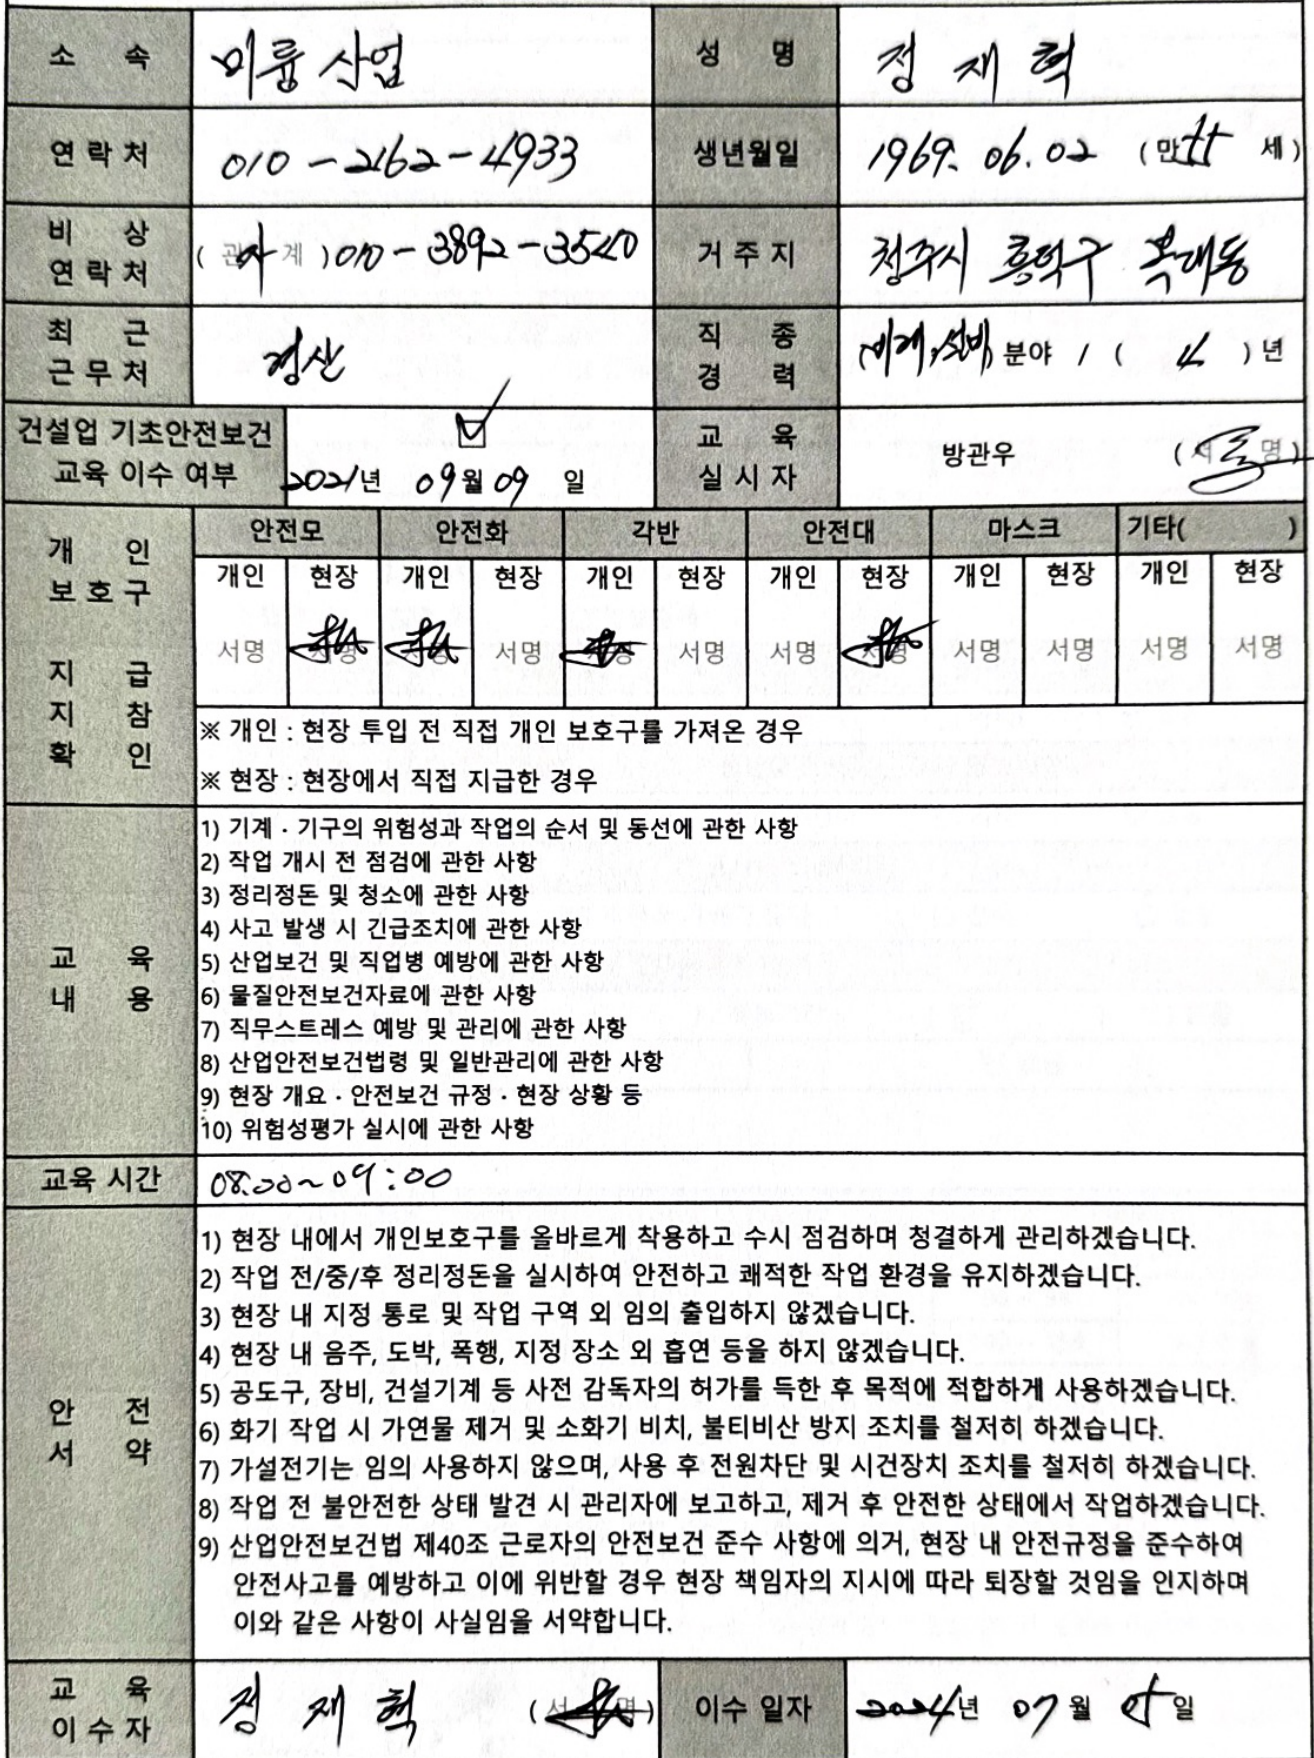 소 속 미륭산업 성 명 정재혁
연락처 010-2162-4933 생년월일 1969. 06. 02 (만 55 세)
비 상 연락처 (관 계) 010-3892-3540 거주지 청주시 흥덕구 복대동
최 근 근무처 경산 직 종 경 력 (기계설비) 분야 / ( ) 년
건설업 기초안전보건 교육 이수 여부 2021년 09월 09 일 교 육 실시자 방관우 (서 명)
개 인 보호구 지 급 지 참 확 인
안전모 안전화 각반 안전대 마스크 기타( )
개인 현장 개인 현장 개인 현장 개인 현장 개인 현장 개인 현장
서명 서명 서명 서명 서명 서명 서명 서명 서명 서명 서명 서명
※ 개인 : 현장 투입 전 직접 개인 보호구를 가져온 경우
※ 현장 : 현장에서 직접 지급한 경우
교 육 내 용
1) 기계 · 기구의 위험성과 작업의 순서 및 동선에 관한 사항
2) 작업 개시 전 점검에 관한 사항
3) 정리정돈 및 청소에 관한 사항
4) 사고 발생 시 긴급조치에 관한 사항
5) 산업보건 및 직업병 예방에 관한 사항
6) 물질안전보건자료에 관한 사항
7) 직무스트레스 예방 및 관리에 관한 사항
8) 산업안전보건법령 및 일반관리에 관한 사항
9) 현장 개요 · 안전보건 규정 · 현장 상황 등
10) 위험성평가 실시에 관한 사항
교육 시간 08:00~09:00
안 전 서 약
1) 현장 내에서 개인보호구를 올바르게 착용하고 수시 점검하며 청결하게 관리하겠습니다.
2) 작업 전/중/후 정리정돈을 실시하여 안전하고 쾌적한 작업 환경을 유지하겠습니다.
3) 현장 내 지정 통로 및 작업 구역 외 임의 출입하지 않겠습니다.
4) 현장 내 음주, 도박, 폭행, 지정 장소 외 흡연 등을 하지 않겠습니다.
5) 공도구, 장비, 건설기계 등 사전 감독자의 허가를 득한 후 목적에 적합하게 사용하겠습니다.
6) 화기 작업 시 가연물 제거 및 소화기 비치, 불티비산 방지 조치를 철저히 하겠습니다.
7) 가설전기는 임의 사용하지 않으며, 사용 후 전원차단 및 시건장치 조치를 철저히 하겠습니다.
8) 작업 전 불안전한 상태 발견 시 관리자에 보고하고, 제거 후 안전한 상태에서 작업하겠습니다.
9) 산업안전보건법 제40조 근로자의 안전보건 준수 사항에 의거, 현장 내 안전규정을 준수하여
안전사고를 예방하고 이에 위반할 경우 현장 책임자의 지시에 따라 퇴장할 것임을 인지하며
이와 같은 사항이 사실임을 서약합니다.
교 육 이수자 정재혁 (서 명) 이수 일자 2024년 07월 일